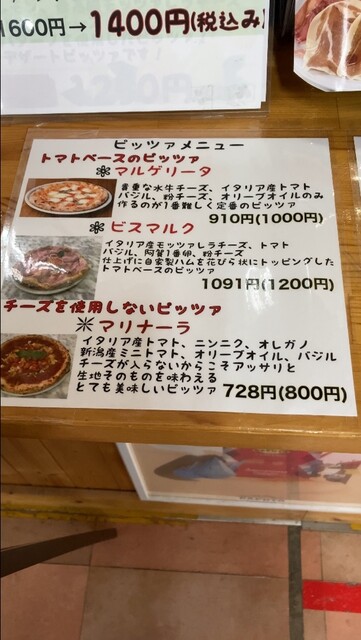 1600円→1400円(税込み)
ピッツァメニュー
トマトベースのピッツァ
❀マルゲリータ
貴重な水牛チーズ、イタリア産トマト
バジル、粉チーズ、オリーブオイルのみ
作るのが1番難しく定番のピッツァ
910円(1000円)
❀ビスマルク
イタリア産モッツァレラチーズ、トマト
バジル、阿賀1番卵、粉チーズ
仕上げに自家製ハムを花びら状にトッピングした
トマトベースのピッツァ
1091円(1200円)
チーズを使用しないピッツァ
✳マリナーラ
イタリア産トマト、ニンニク、オレガノ
新潟産ミニトマト、オリーブオイル、バジル
チーズが入らないからこそアッサリと
生地そのものを味わえる
とても美味しいピッツァ 728円(800円)